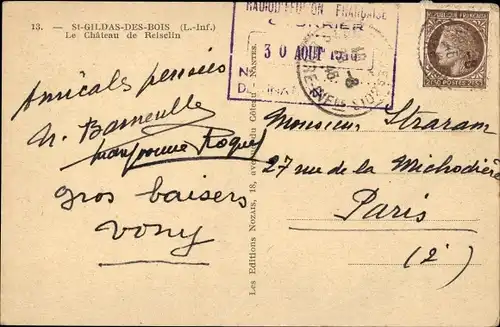 13. — St-GILDAS-DES-BOIS (L.-Inf.)
Le Château de Reiselin
RADIODIFFUSION FRANÇAISE
COURRIER
30 AOUT 1946
Amicals pensées
Roques
gros baisers
vony
Les Editions Nozais, 18, avenue du Côteau - Nantes.
Monsieur Straram
27 rue de la Michodière
Paris
(2e)